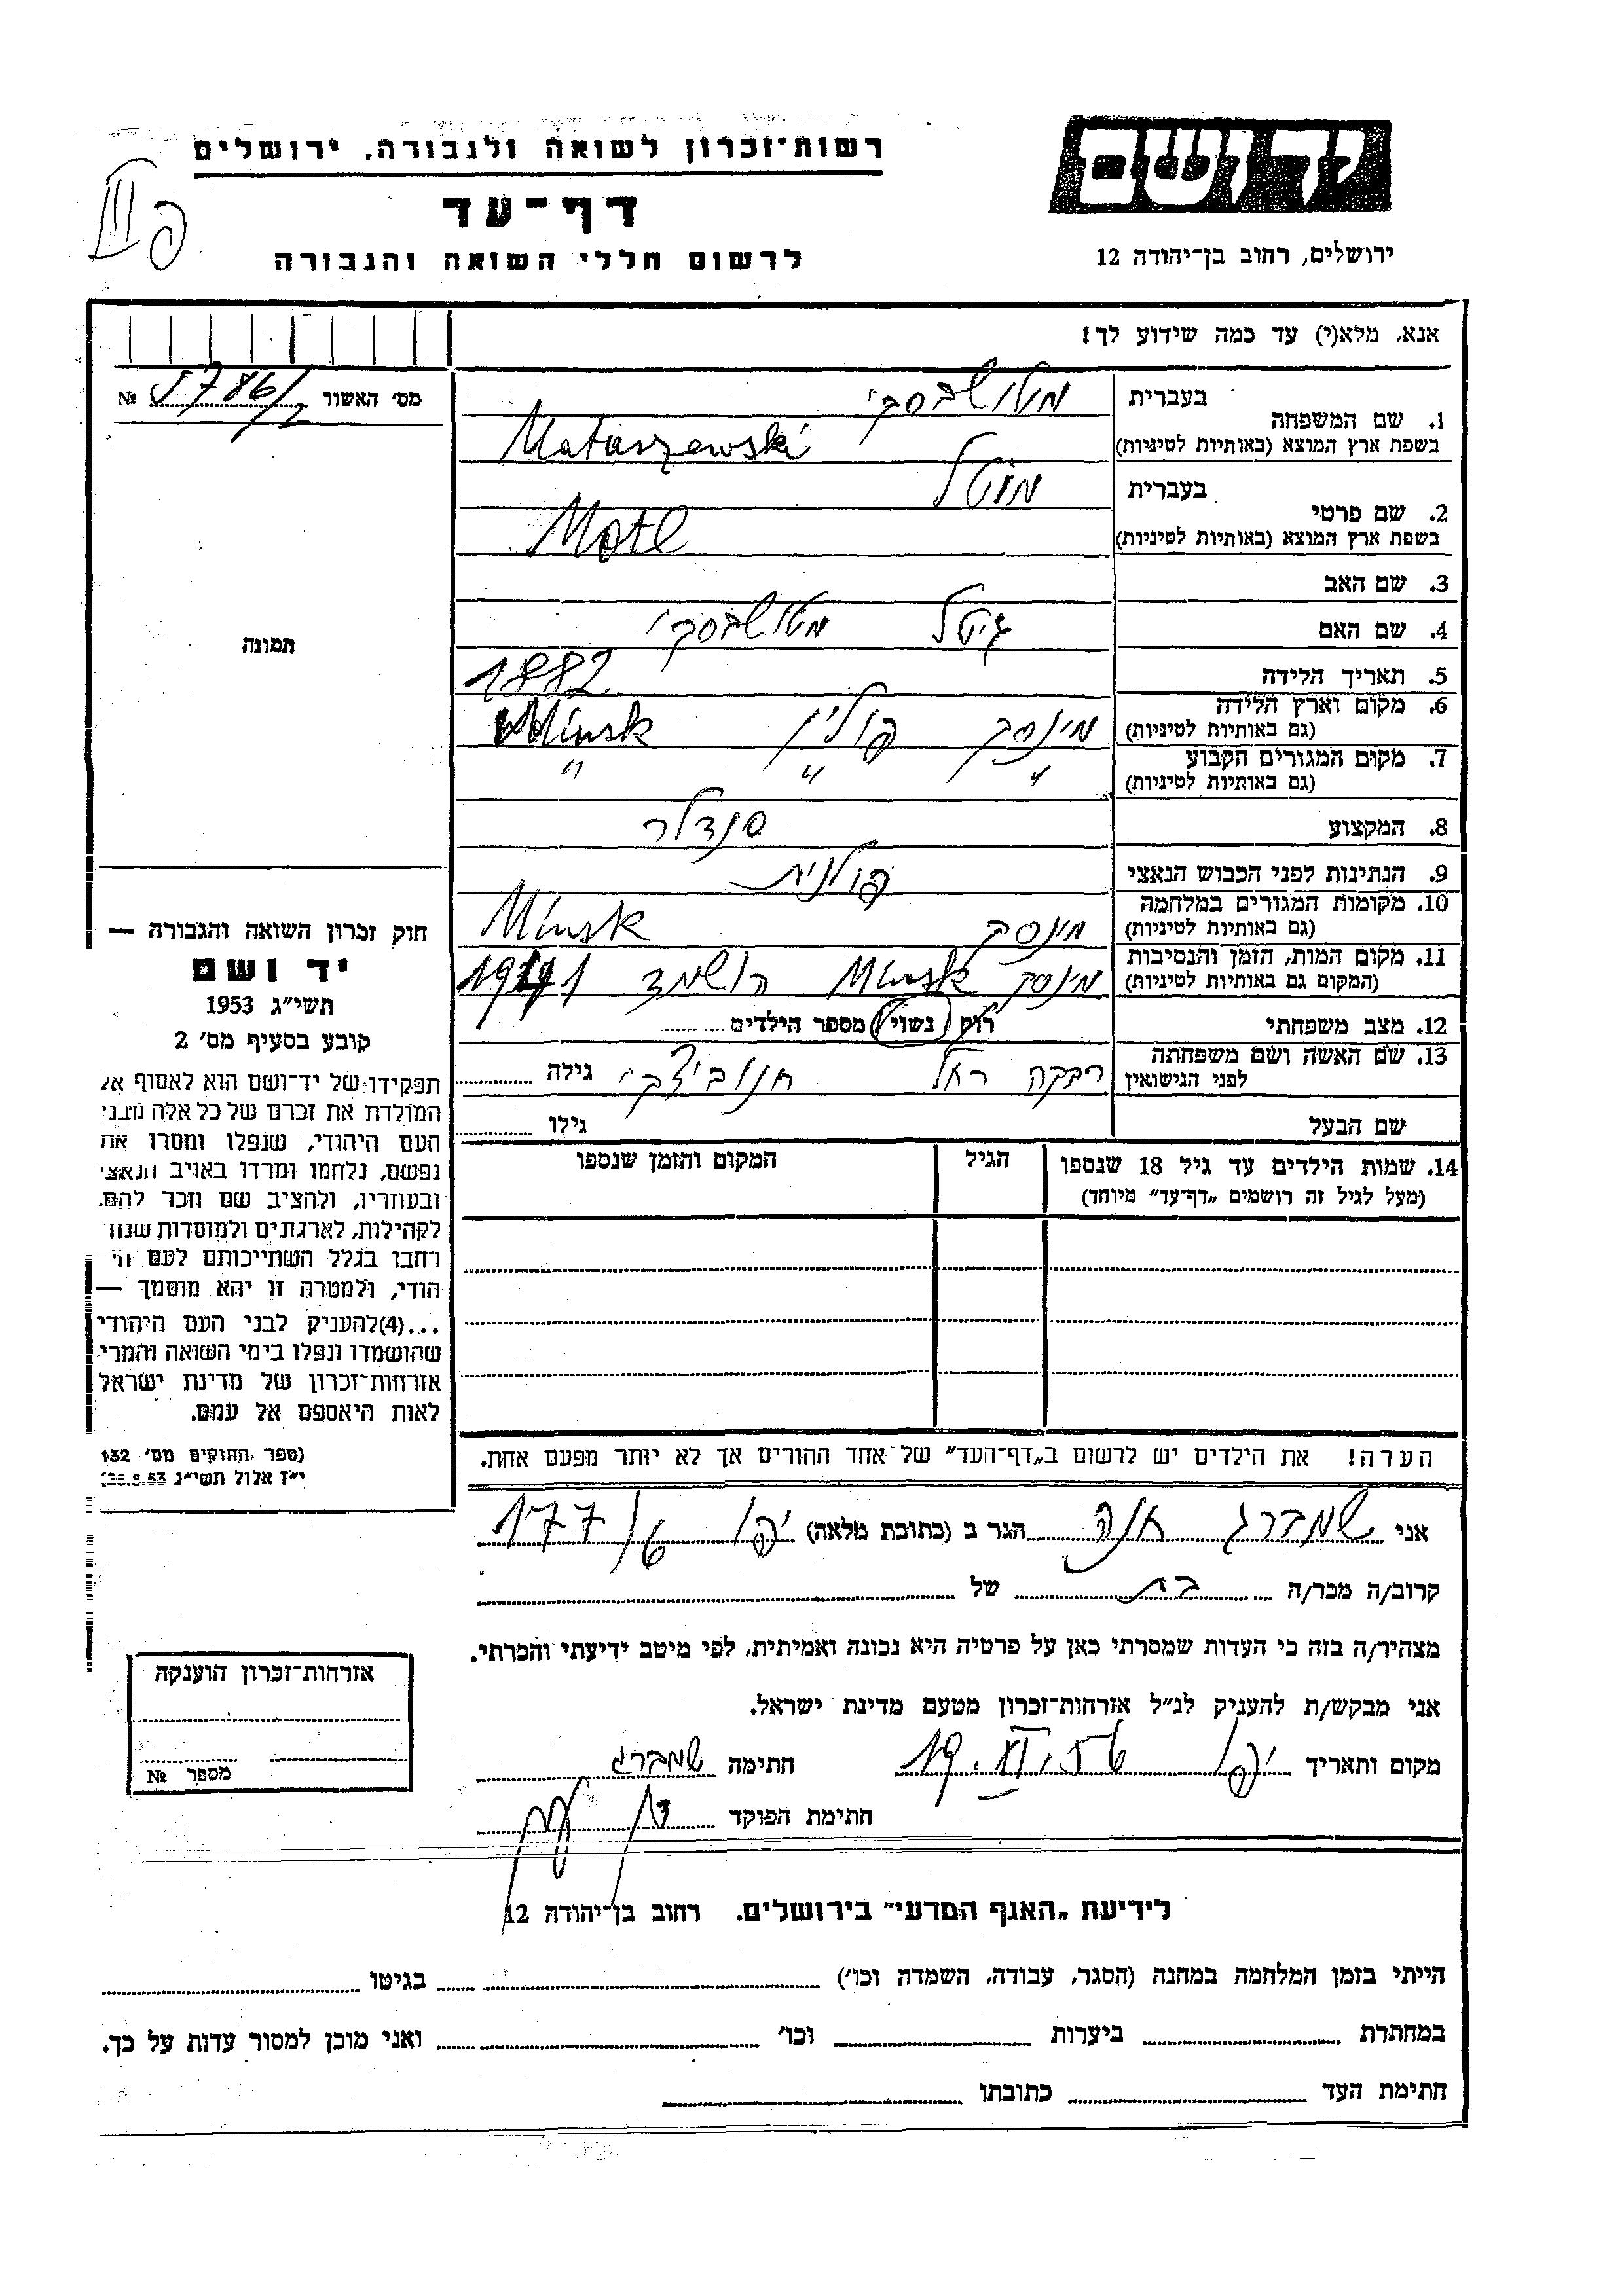 רשות־זכרון לשואה ולגבורה, ירושלים
יד ושם
דף־עד
לרשום חללי השואה והגבורה
ירושלים, רחוב בן־יהודה 12
אנא, מלא(י) עד כמה שידוע לך!
מס׳ האשור № 5786/2
1. שם המשפחה בעברית מטושבסקי
בשפת ארץ המוצא (באותיות לטיניות) Mataszewski
2. שם פרטי בעברית מוטל
בשפת ארץ המוצא (באותיות לטיניות) Motl
3. שם האב
4. שם האם גיטל מטושבסקי
5. תאריך הלידה 1882
6. מקום וארץ הלידה (גם באותיות לטיניות) מינסק פולין Minsk
7. מקום המגורים הקבוע (גם באותיות לטיניות) " " "
8. המקצוע סנדלר
9. הנתינות לפני הכבוש הנאצי פולנית
10. מקומות המגורים במלחמה (גם באותיות לטיניות) מינסק Minsk
11. מקום המות, הזמן והנסיבות (המקום גם באותיות לטיניות) מינסק Minsk הושמד 1941
12. מצב משפחתי רווק / נשוי / מספר הילדים
13. שם האשה ושם משפחתה לפני הנישואין רבקה רחל גילה
שם הבעל גילו
14. שמות הילדים עד גיל 18 שנספו הגיל המקום והזמן שנספו
(מעל לגיל זה רושמים „דף־עד״ מיוחד)
הערה! את הילדים יש לרשום ב„דף־העד״ של אחד ההורים אך לא יותר מפעם אחת.
תמונה
חוק זכרון השואה והגבורה —
יד ושם
תשי״ג 1953
קובע בסעיף מס׳ 2
תפקידו של יד־ושם הוא לאסוף אל
המולדת את זכרם של כל אלה מבני
העם היהודי, שנפלו ומסרו את
נפשם, נלחמו ומרדו באויב הנאצי
ובעוזריו, ולהציב שם וזכר להם,
לקהילות, לארגונים ולמוסדות שנח־
רחבו בגלל השתייכותם לעם הי־
הודי, ולמטרה זו יהא מוסמך —
...(4)להעניק לבני העם היהודי
שהושמדו ונפלו בימי השואה והמרי
אזרחות־זכרון של מדינת ישראל
לאות היאספם אל עמם.
(ספר החוקים מס׳ 132
י״ז אלול תשי״ג 28.8.53)
אני שמברג חנה הגר ב (כתובת מלאה) יפו ט/177
קרוב/ה מכר/ה בת של
מצהיר/ה בזה כי העדות שמסרתי כאן על פרטיה היא נכונה ואמיתית, לפי מיטב ידיעתי והכרתי.
אני מבקש/ת להעניק לנ״ל אזרחות־זכרון מטעם מדינת ישראל.
מקום ותאריך יפו 19. VI. 56 חתימה שמברג
חתימת הפוקד
אזרחות־זכרון הוענקה
מספר №
לידיעת „האגף המדעי״ בירושלים. רחוב בן־יהודה 12
הייתי בזמן המלחמה במחנה (הסגר, עבודה, השמדה וכו׳) בגיטו
במחתרת ביערות וכו׳ ואני מוכן למסור עדות על כך.
חתימת העד כתובתו